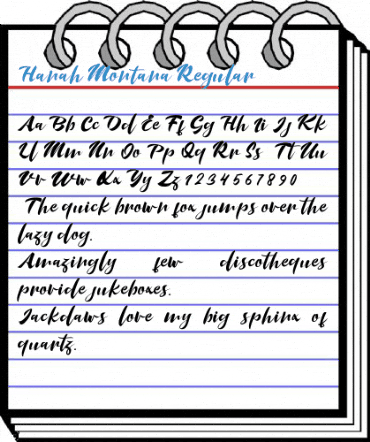 Hanah Montana Regular
Aa Bb Cc Dd Ee Ff Gg Hh Ii Jj Kk
Ll Mm Nn Oo Pp Qq Rr Ss Tt Uu
Vv Ww Xx Yy Zz 1234567890
The quick brown fox jumps over the
lazy dog.
Amazingly few discotheques
provide jukeboxes.
Jackdaws love my big sphinx of
quartz.